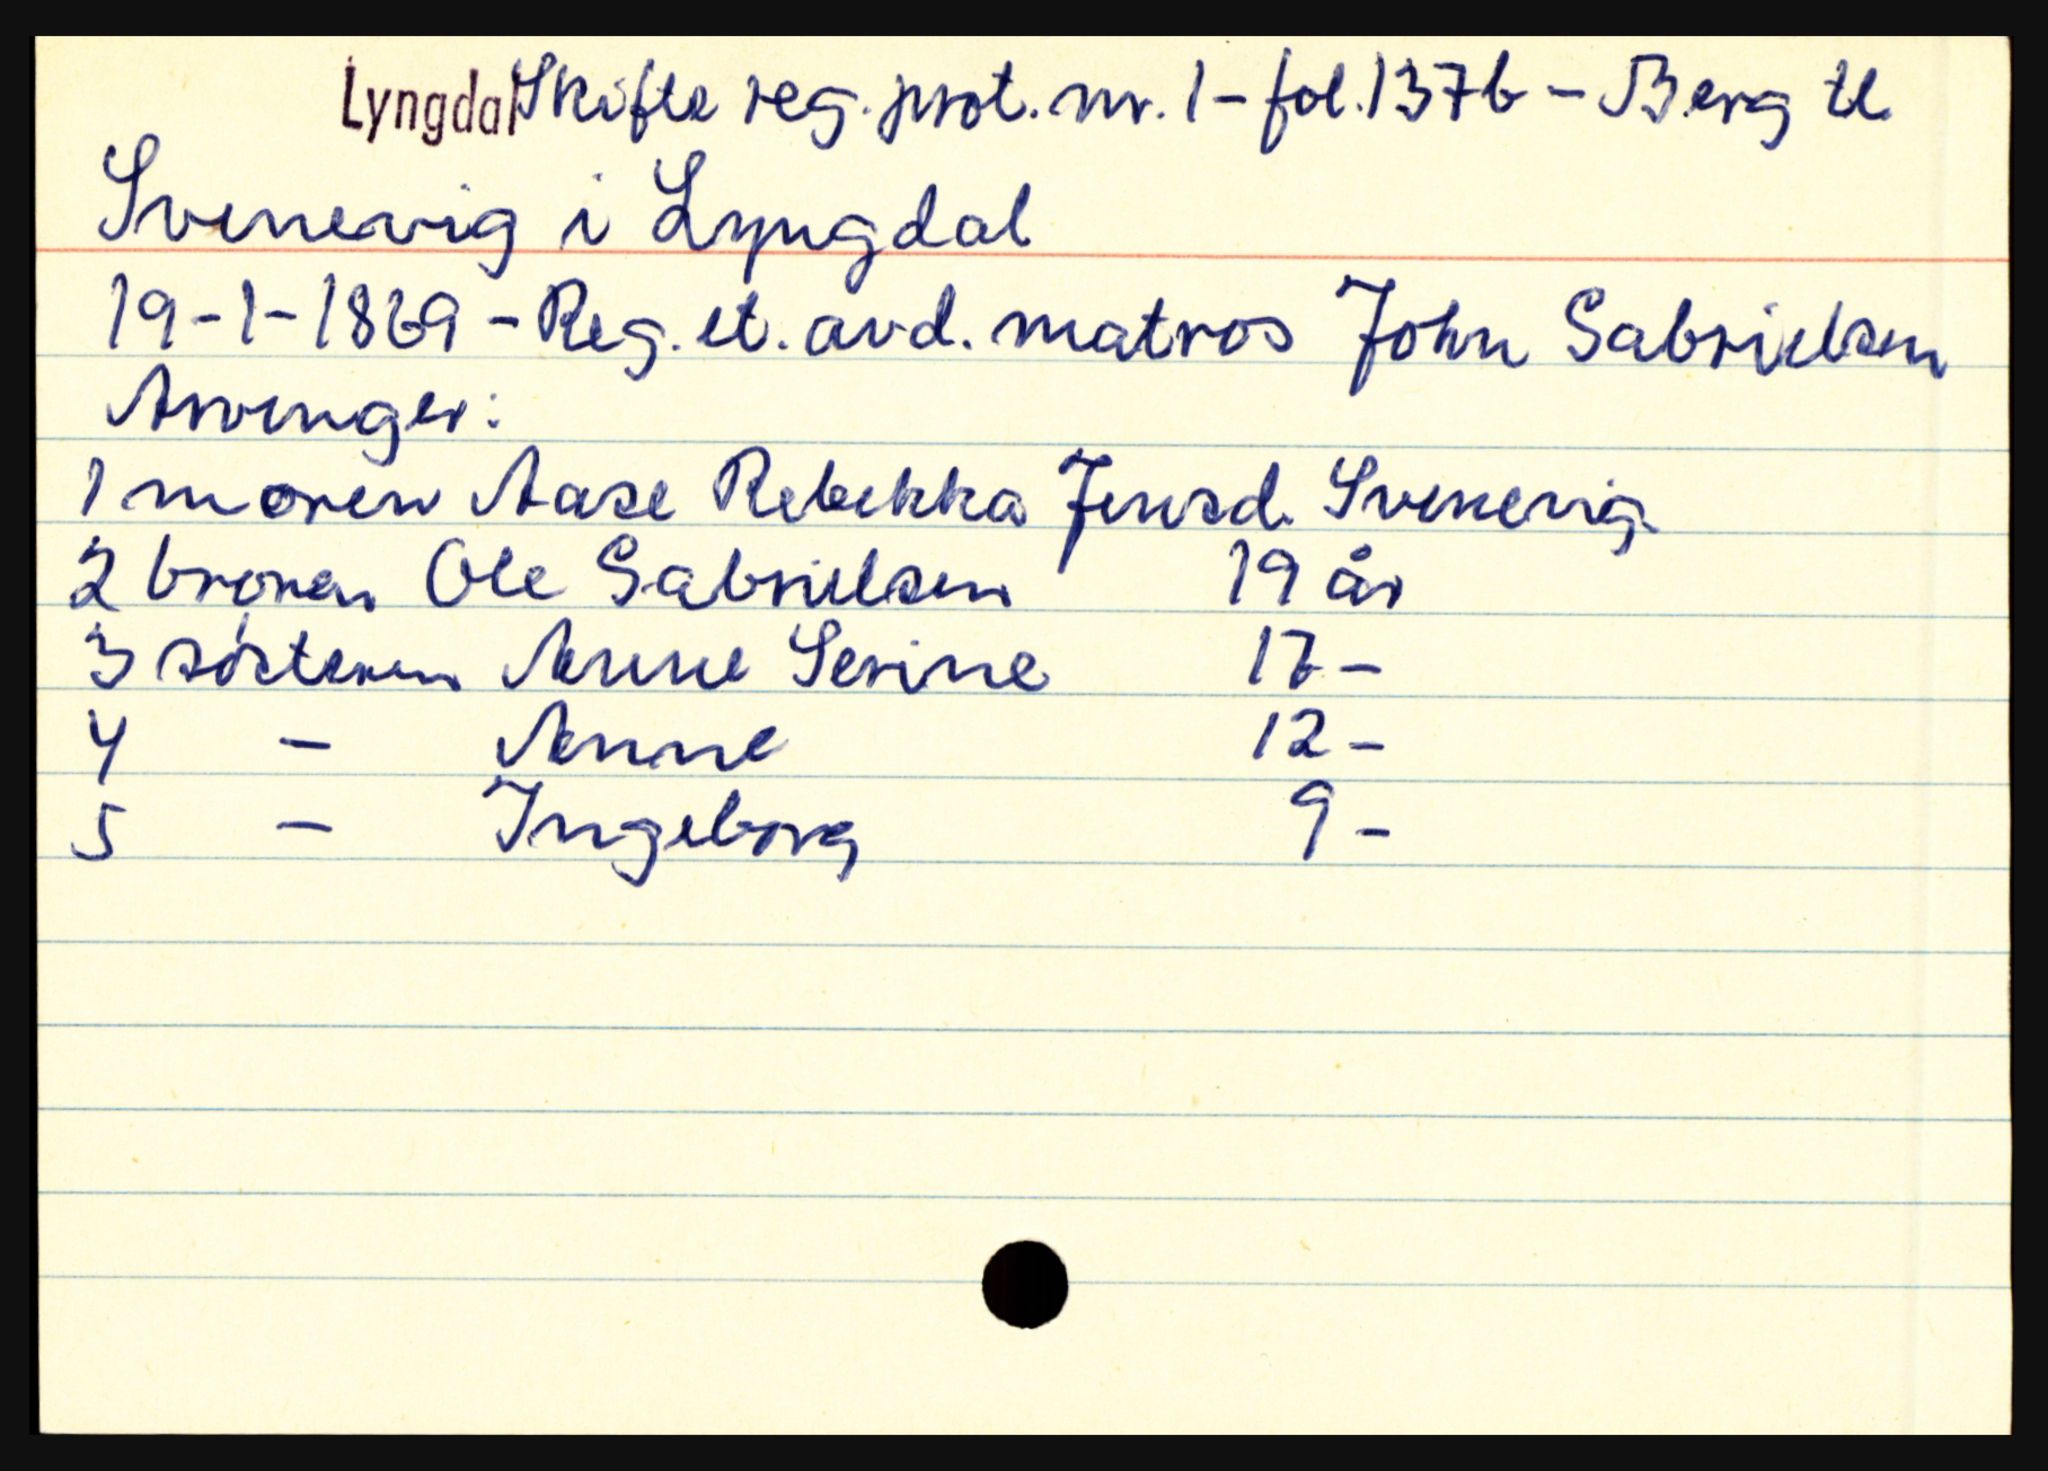 Lyngdal Skifte reg. prot. nr. 1 - fol. 137b - Berg tl.
Svenevig i Lyngdal
19-1-1869 - Reg. et. avd. matros John Gabrielsen
Arvinger:
1 moren Aase Rebekka Jensd. Svenevig
2 broren Ole Gabrielsen 19 år
3 søsteren Anne Serine 17 -
4 - Anne 12 -
5 - Ingeborg 9 -